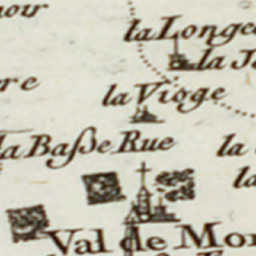 noir
la Longe
la J
re
la Vioge
la Baſse Rue
la
la
Val de Mor